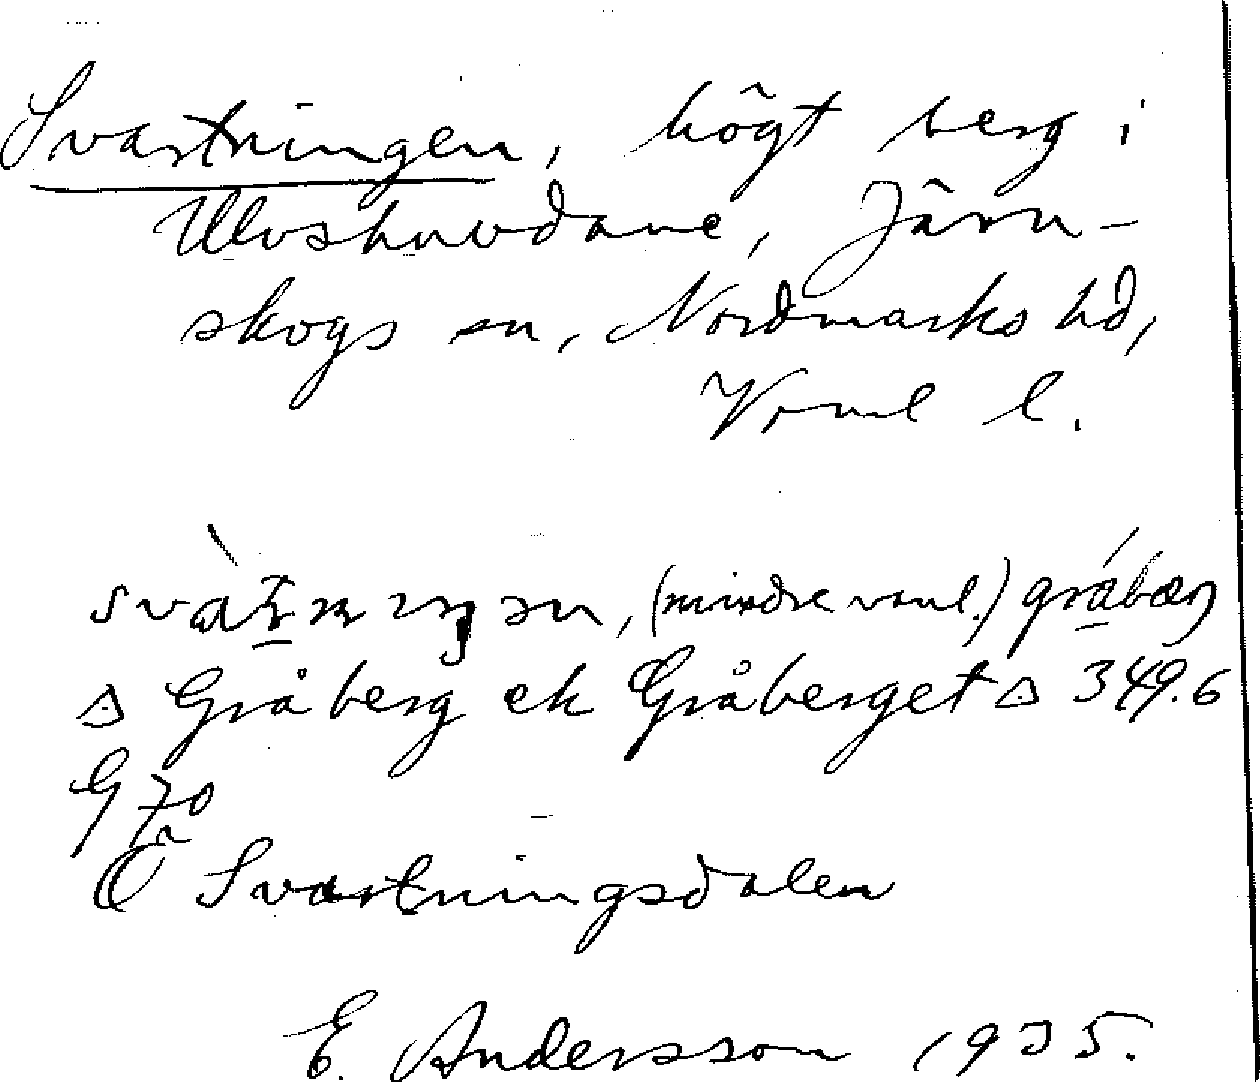 Svartningen, högt berg i
Ulvshuvdane, Järn-
skogs sn, Nordmarks hd,
Verml l.
(mindre vanl.)
Δ Gråberg ek Gråberget Δ 349.6
G 70
Ö Svartningsdalen
E. Andersson 1935.